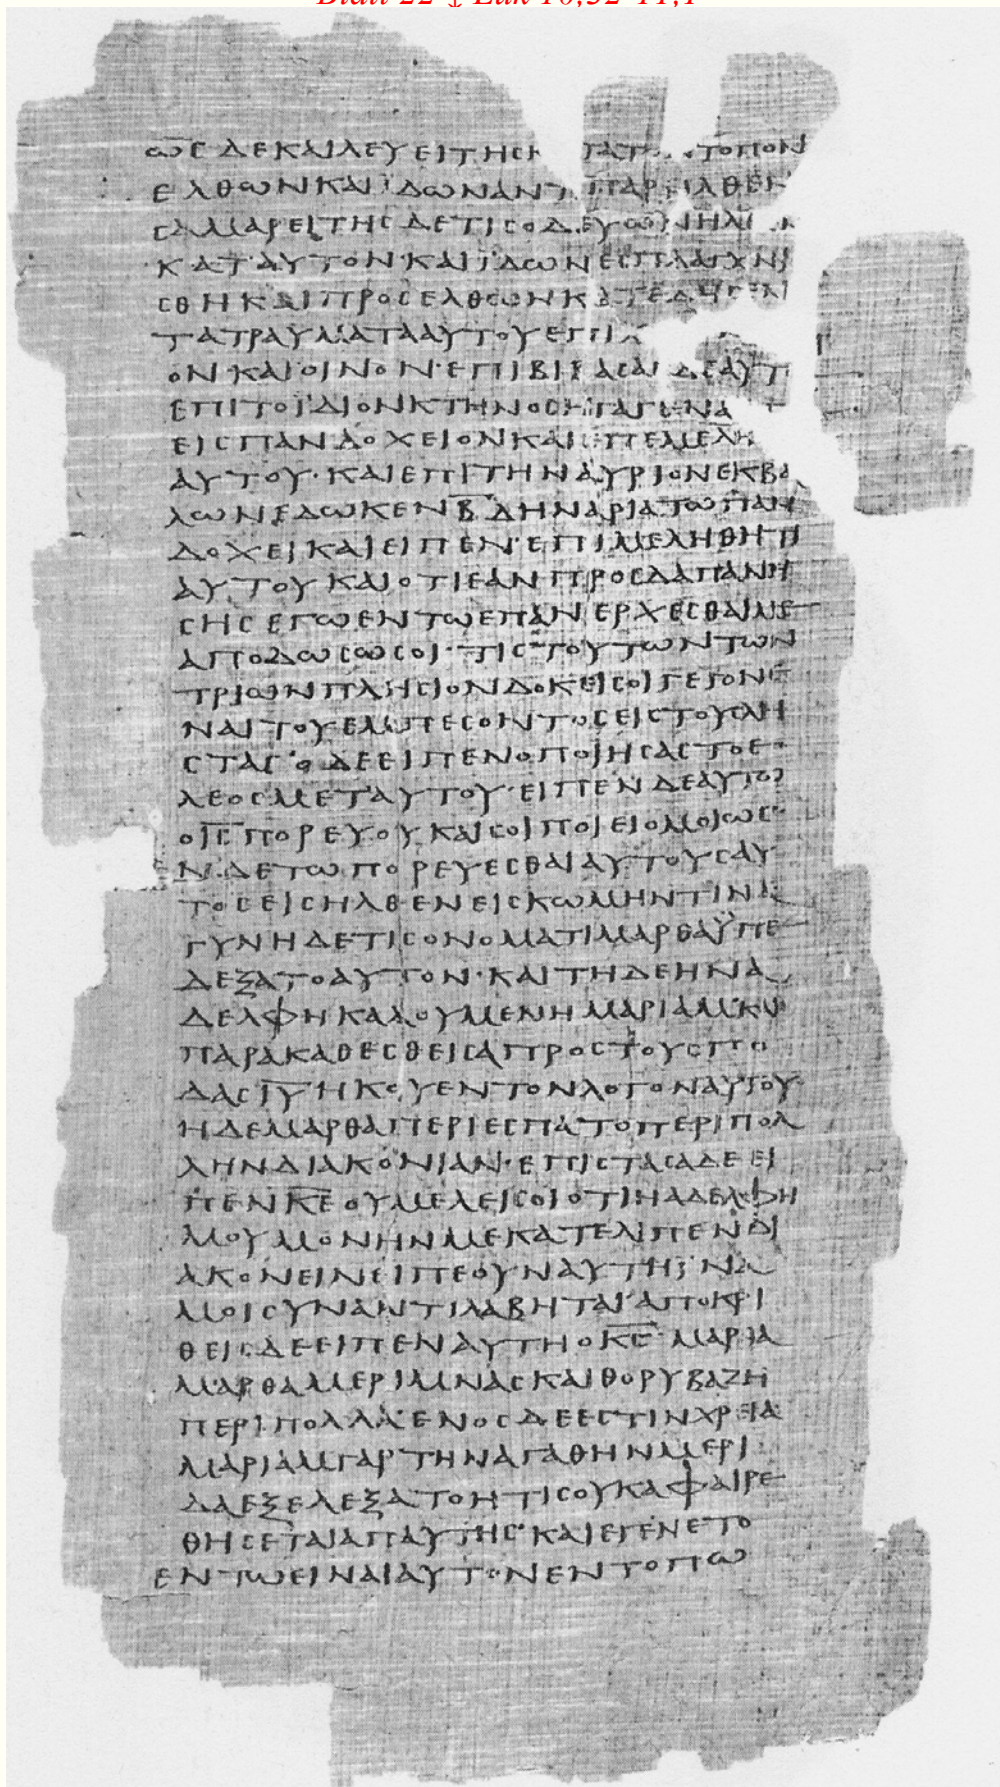 Blatt 22 ↓ Luk 10,32-11,1
ωϲ δε και λευειτηϲ κατα τοπον
ελθων και ϊδων αντιπαρηλθεν
ϲαμαρειτηϲ δε τιϲ οδευων ηλθεν
κατ αυτον· και ϊδων εϲπλαγχνι
ϲθη και προϲελθων κατεδηϲεν
τα τραυματα αυτου επι
ον και οινον· επιβιβαϲαϲ δε αυτ
επι το ϊδιον κτηνοϲ ηγαγεν α
ειϲ πανδοχειον και επεμελη
αυτου· και επι την αυριον εκβα
λων εδωκεν Β̅ δηναρια τω παν
δοχει και ειπεν· επιμεληθητι
αυτου και οτι εαν προϲδαπανη
ϲηϲ εγω εν τω επανερχεϲθαι με
αποδωϲω ϲοι· τιϲ τουτων των
τριων πληϲιον δοκει ϲοι γεγονε
ναι του εμπεϲοντοϲ ειϲ τουϲ λη
ϲταϲ· ο δε ειπεν ο ποιηϲαϲ το ε
λεοϲ μετ αυτου· ειπεν δε αυτω
ο ι̅ϲ̅ πορευου και ϲοι ποιει ομοιωϲ·
εν δε τω πορευεϲθαι αυτουϲ αυ
τοϲ ειϲηλθεν ειϲ κωμην τινα
γυνη δε τιϲ ονοματι μαρθα ϋπε
δεξατο αυτον· και τηδε ην α
δελφη καλουμενη μαριαμ· κ
παρακαθεϲθειϲα προϲ τουϲ πο
δαϲ ι̅υ̅ ηκουεν τον λογον αυτου·
η δε μαρθα περιεϲπατο περι πολ
λην διακονιαν· επιϲταϲα δε ει
πεν κ̅ε̅ ου μελει ϲοι οτι η αδελφη
μου μονην με κατελιπεν δι
ακονειν ειπε ουν αυτη ϊνα
μοι ϲυναντιλαβηται· αποκρι
θειϲ δε ειπεν αυτη ο κ̅ϲ̅· μαρθα
μαρθα μεριμναϲ και θορυβαζη
περι πολλα· ενοϲ δε εϲτιν χρεια
μαριαμ γαρ την αγαθην μερι
δα εξελεξατο ητιϲ ουκ αφαιρε
θηϲεται απ αυτηϲ· και εγενετο
εν τω ειναι αυτον εν τοπω